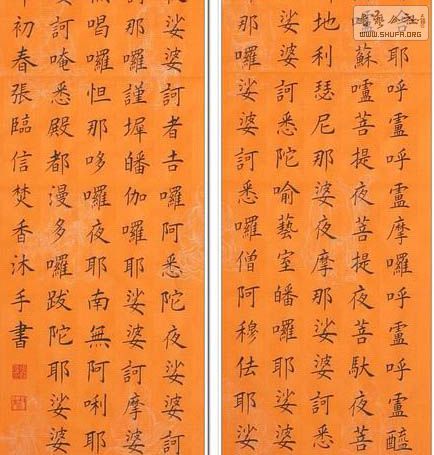 耶呼盧呼盧摩囉呼盧呼盧醯
蘇嚧菩提夜菩提夜菩馱夜菩
地利瑟尼那婆夜摩那娑婆訶悉
娑婆訶悉陀喻藝室皤囉耶娑婆
那囉娑婆訶悉囉僧阿穆佉耶娑
娑婆訶者吉囉阿悉陀夜娑婆訶
那囉謹墀皤伽囉耶娑婆訶摩婆
喝囉怛那哆囉夜耶南無阿唎耶
訶唵悉殿都漫多囉跋陀耶娑婆
初春張臨信焚香沐手書
WWW.SHUFA.ORG